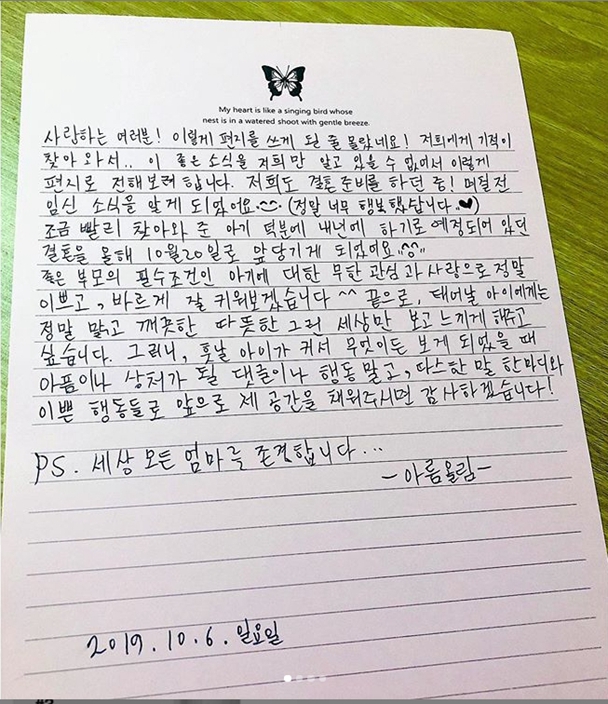 My heart is like a singing bird whose
nest is in a watered shoot with gentle breeze.
사랑하는 여러분! 이렇게 편지를 쓰게 된 줄 몰랐네요! 저희에게 기적이
찾아 와서.. 이 좋은 소식을 저희만 알고 있을 수 없어서 이렇게
편지로 전해보려 합니다. 저희도 결혼준비를 하던 중! 며칠전
임신 소식을 알게 되었어요^^. (정말 너무 행복했습니다.♥)
조금 빨리 찾아와 준 아기 덕분에 내년에 하기로 예정되어 있던
결혼을 올해 10월20일로 앞당기게 되었어요"^^"
좋은 부모의 필수조건인 아기에 대한 무한 관심과 사랑으로 정말
이쁘고, 바르게 잘 키워보겠습니다 ^^ 끝으로, 태어날 아이에게는
정말 맑고 깨끗한 따뜻한 그런 세상만 보고 느끼게 해주고
싶습니다. 그러니, 훗날 아이가 커서 무엇이든 보게 되었을 때
아픔이나 상처가 될 댓글이나 행동 말고, 다스한 말 한마디와
이쁜 행동들로 앞으로 제 공간을 채워주시면 감사하겠습니다!
PS. 세상 모든 엄마를 존경합니다...
-아름올림-
2019.10.6. 일요일